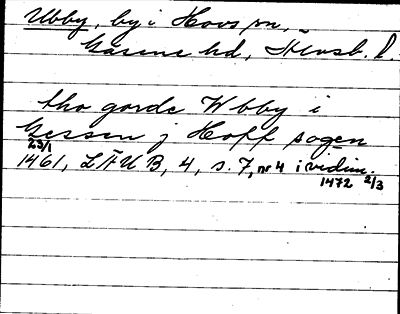 Ubby, by i Hovs sn,
Gäsene hd, Älvsb. l.
tho gorde Wbby i
Gessen j Hoff sogen
23/1
1461, LÄUB, 4, s. 7, nr 4 i vidim.
1472 2/3